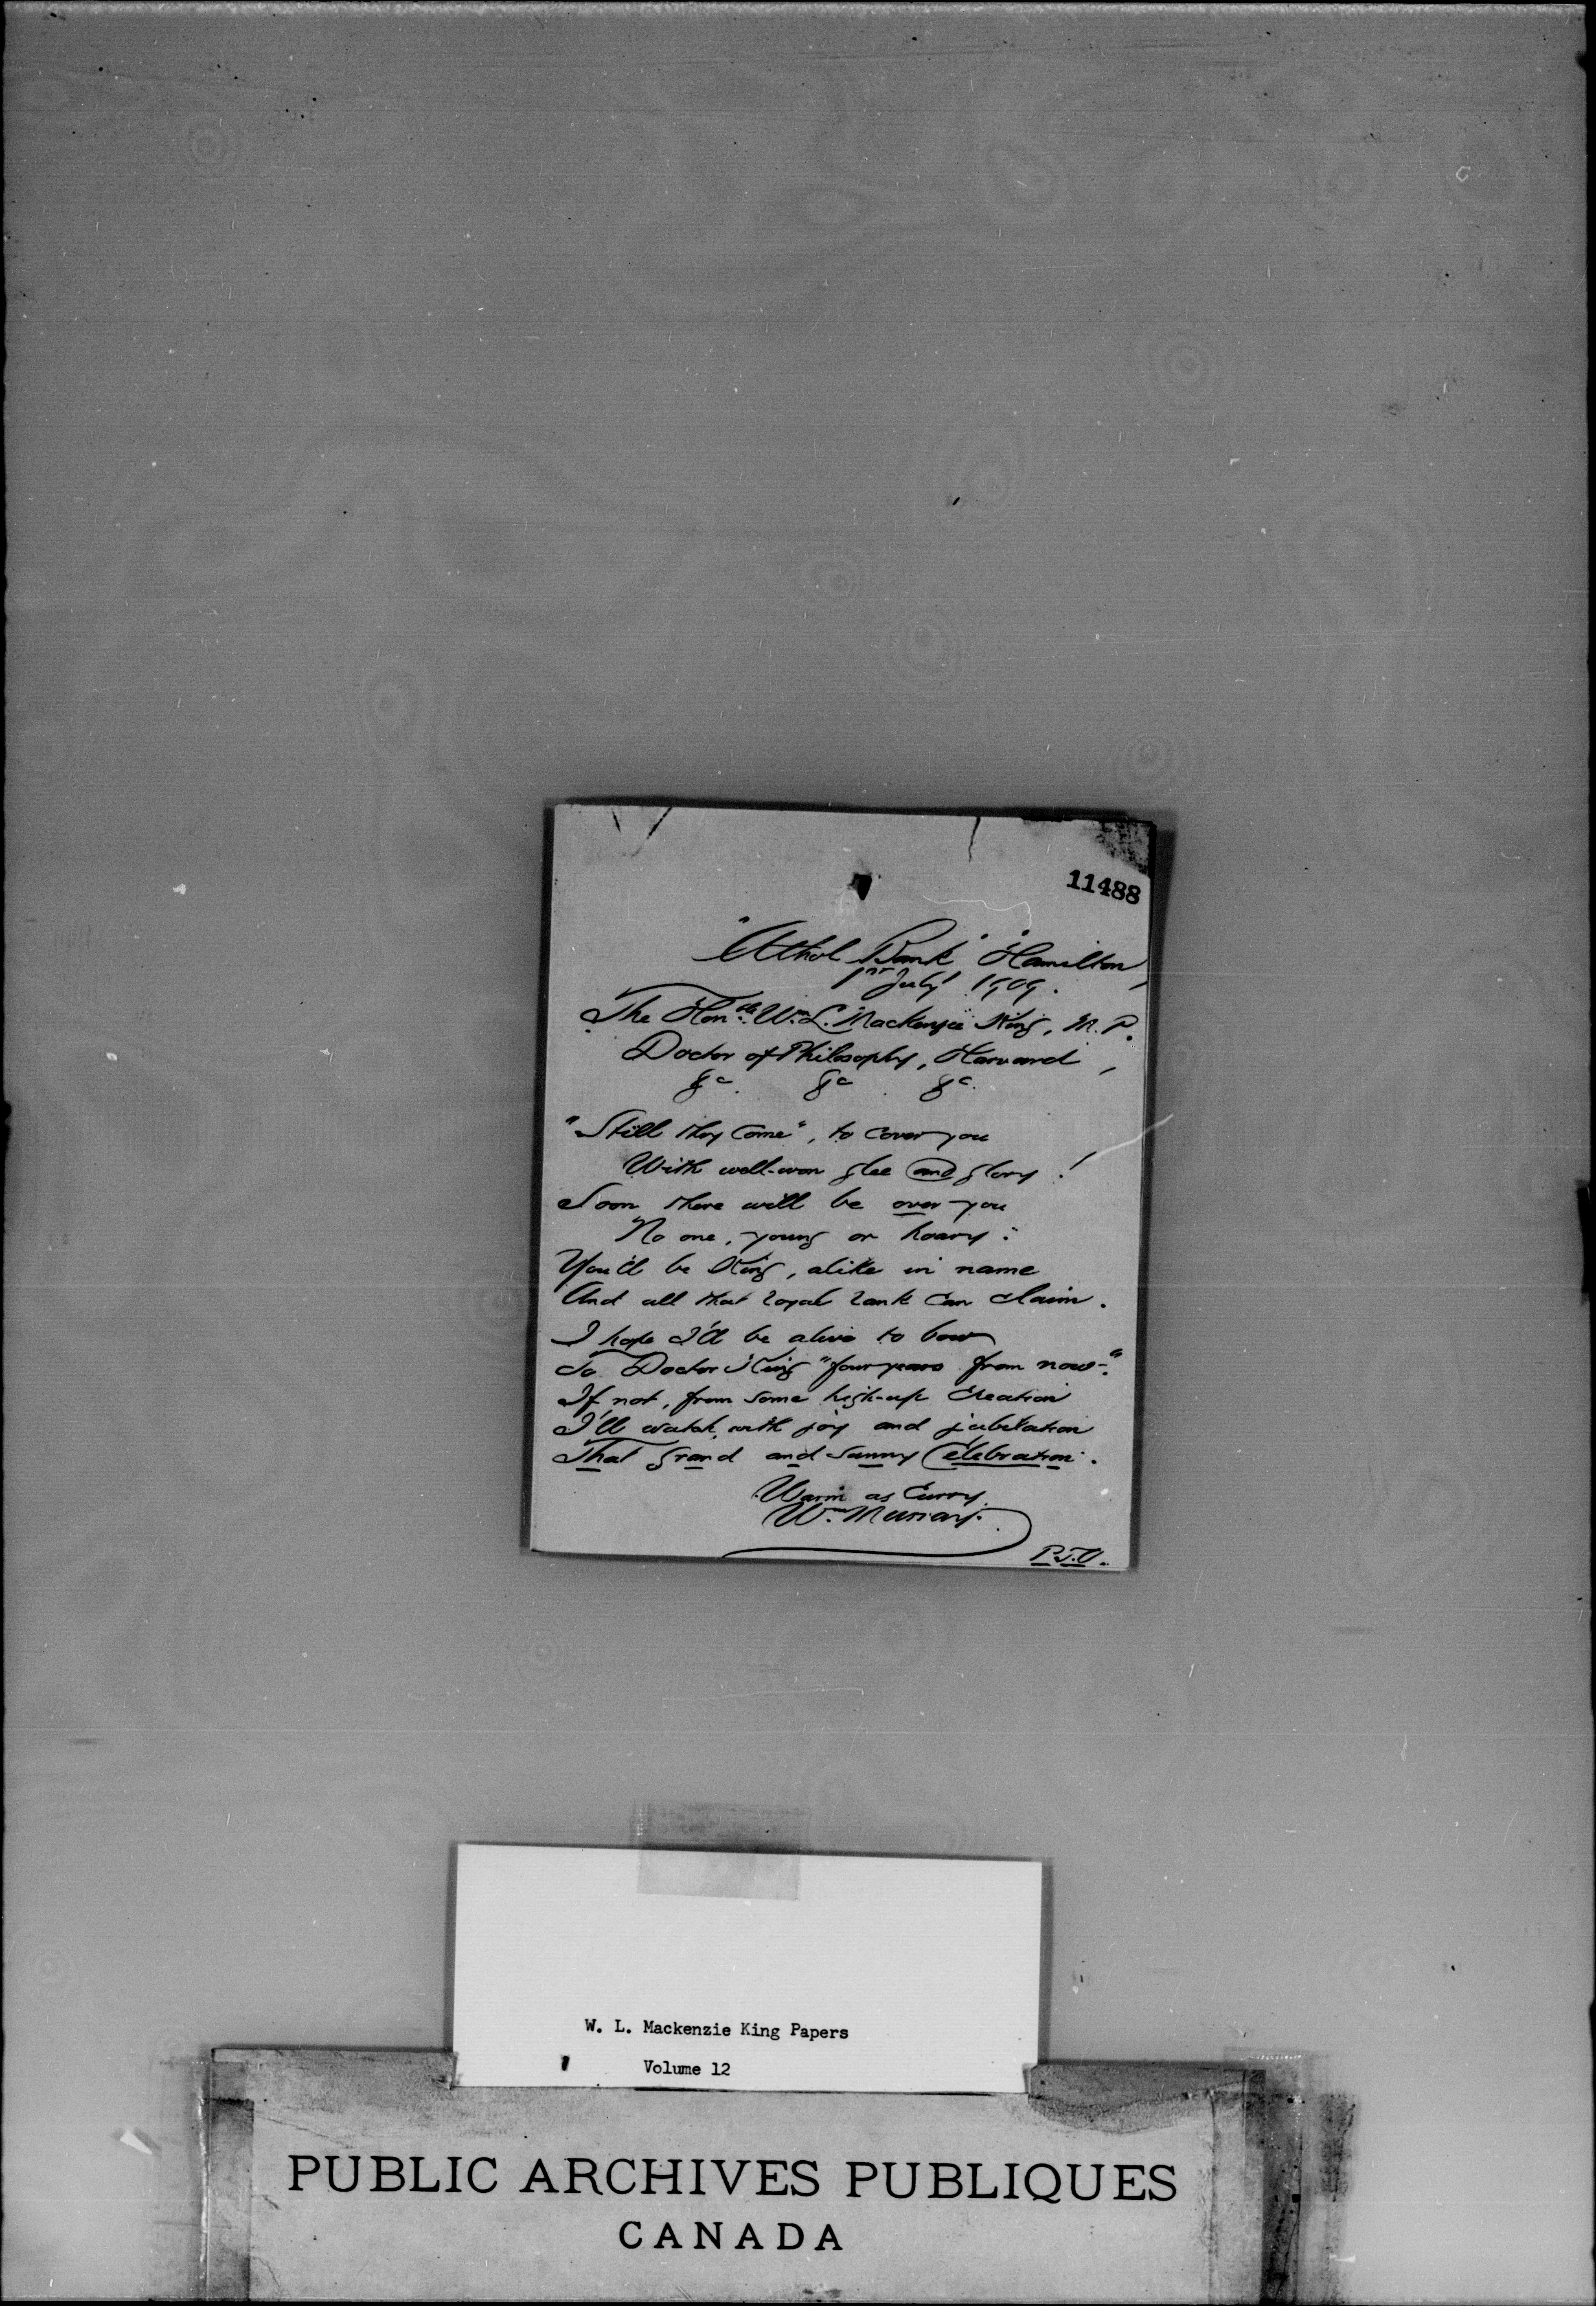 11488
"Athol Bank" Hamilton,
1st July 1909.
The Honble Wm L. Mackenzie King, M. P.
Doctor of Philosophy, Harvard,
&c. &c. &c.
"Still they Come", to cover you
With well-won glee and glory!
Soon there will be over you
No one, young or hoary:
You'll be King, alike in name
And all that royal rank can claim.
I hope I'll be alive to bow
To Doctor King "four years from now".
If not, from some high-up Creation
I'll watch, with joy and jubilation
That Grand and Sunny Celebration.
Warm as Curry,
Wm Murray.
P.T.O.
W. L. Mackenzie King Papers
Volume 12
PUBLIC ARCHIVES PUBLIQUES
CANADA